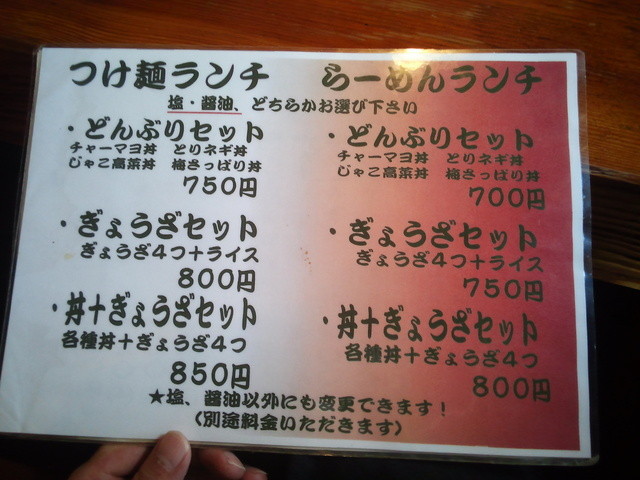 つけ麺ランチ
らーめんランチ
塩・醤油、どちらかお選び下さい
・どんぶりセット
チャーマヨ丼 とりネギ丼
じゃこ高菜丼 梅さっぱり丼
750円
・ぎょうざセット
ぎょうざ4つ+ライス
800円
・丼+ぎょうざセット
各種丼+ぎょうざ4つ
850円
・どんぶりセット
チャーマヨ丼 とりネギ丼
じゃこ高菜丼 梅さっぱり丼
700円
・ぎょうざセット
ぎょうざ4つ+ライス
750円
・丼+ぎょうざセット
各種丼+ぎょうざ4つ
800円
★塩、醤油以外にも変更できます!
(別途料金いただきます)